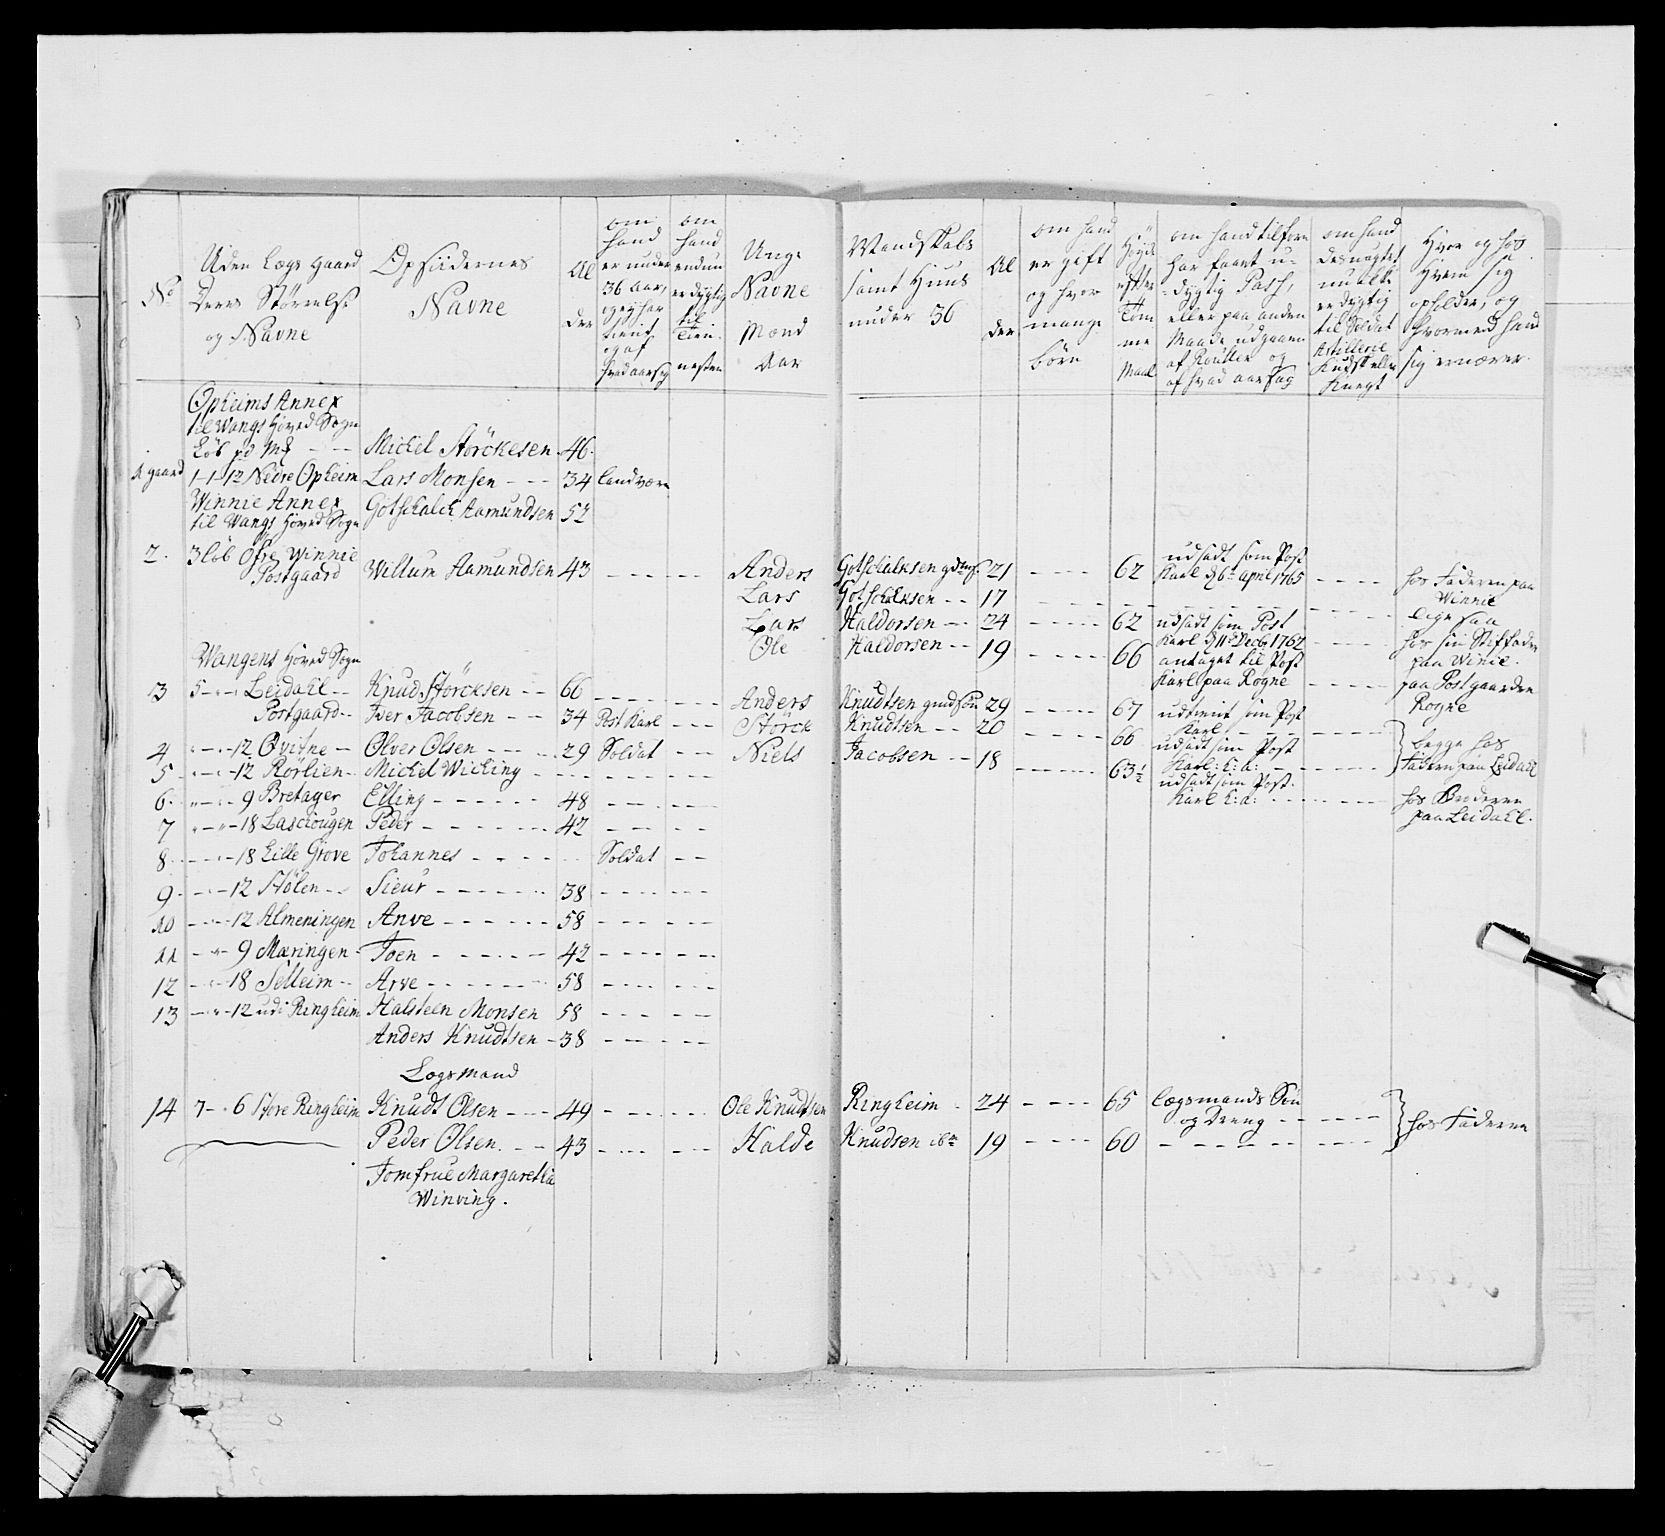 No
Uden Lægs gaard
Deres Størrelse
og Navne
Opsiidernes
Navne
Al
der
om
hand
er under
36 aar,
og ey har
tient,
og af
hvad aarsag
om
hand
endnu
er dygtig
til
Tien-
nesten
Unge
Navne
Mænd
Aar
Mandskabs
samt Huus
under 36
Al
der
om hand
er gift
og hvor
mange
børn
Høyde
efter
Tom
me
Maal
om hand tilforn
har faaet u-
dygtig Pass,
eller paa anden
Maade udgaaen
af Roullen og
af hvad aarsag
om hand
desuagtet
nu ikke
er dygtig
til Soldat
Artillerie
Kudsk eller
Knegt
Hvor og hos
Hvem sig
opholder, og
hvormed hand
sig ernærer
Opheims Annex
til Wangs Hoved Sogn
Løb pd Mk - - - Michel Störckesen 46
1 gaard 1-1-12 Nedre Opheim Lars Monsen - - - 34 landværn
Winnie Annex
til Wangs Hoved Sogn Gotschalck Aamundsen 52
2. 3 Løb Øfre Winnie
Postgaard Willum Aamundsen 43 - - - - - - Anders Gotschalksen 21 - - - - 62 udsadt som Post
Karl d 6te april 1765 - - - - hos Faderen paa
Winnie
Lars Gotschalksen - - 17 - - - - - - - - - - - - ligesaa
Lars Haldorsen - - 24 - - - - 62 udsadt som Post
Karl d 11te Decbr 1762 - - - - hos sin Stiffader
paa Winie.
Ole Haldorsen - - 19 - - - - 66 antaget til Post
Karl paa Rogne - - - - paa Postgaarden
Rogne
Wangens Hoved Sogn
3 5-"-" Leidahl - - Knud Störcksen - - 66 - - - - - - Anders Knudtsen 29 - - - - 67 udtient som Post
Karl - - - -
Postgaard - - Iver Jacobsen - - - 34 Post Karl - - - Störck Knudtsen - - 20 - - - - 66 udsadt som Post
Karl: t: a: - - - - begge hos
Faderen paa Leidahl
4 "-"-12 Qvitne - Olver Olsen - - - 29 Soldat - - Niels Jacobsen - - 18 - - - - 63½ udsadt som Post
Karl t: a: - - - - hos Broderen
paa Leidahl.
5 "-"-12 Rörlien - - Michel Wicking - - - - - -
6. "-"- 9 Bretager Elling - - - - - 48 - - - -
7 "-"-18 Lasciougen Peder - - - - - 42 - - - -
8. -"-"-18 Lille Grove Johannes - - - - Soldat - -
9. -"-"-12 Stölen - - Sieur - - - - - - 38 - - - -
10 -"-"-12 Almeningen Anve - - - - - 58 - - - -
11 -"-"- 9 Mæringen - Joen - - - - - 42 - - - -
12 -"-"-18 Selleim - - Arve - - - - - 58 - - - -
13 -"-"-12 udi Ringheim Halsteen Monsen 58 - - - -
Anders Knudtsen - 38 - - - -
Logsmand
14 7-"-6 Store Ringheim Knudt Olsen - - - 49 - - - - Ole Knudtsen Ringheim 24 - - - - 65 Lægsmands Sön
og Dreng - - - - hos Faderen
Peder Olsen. - - 43 - - - - Halde Knudsen 19 - - - - 60 - - - - - -
Jomfrue Margaretha
Winving.